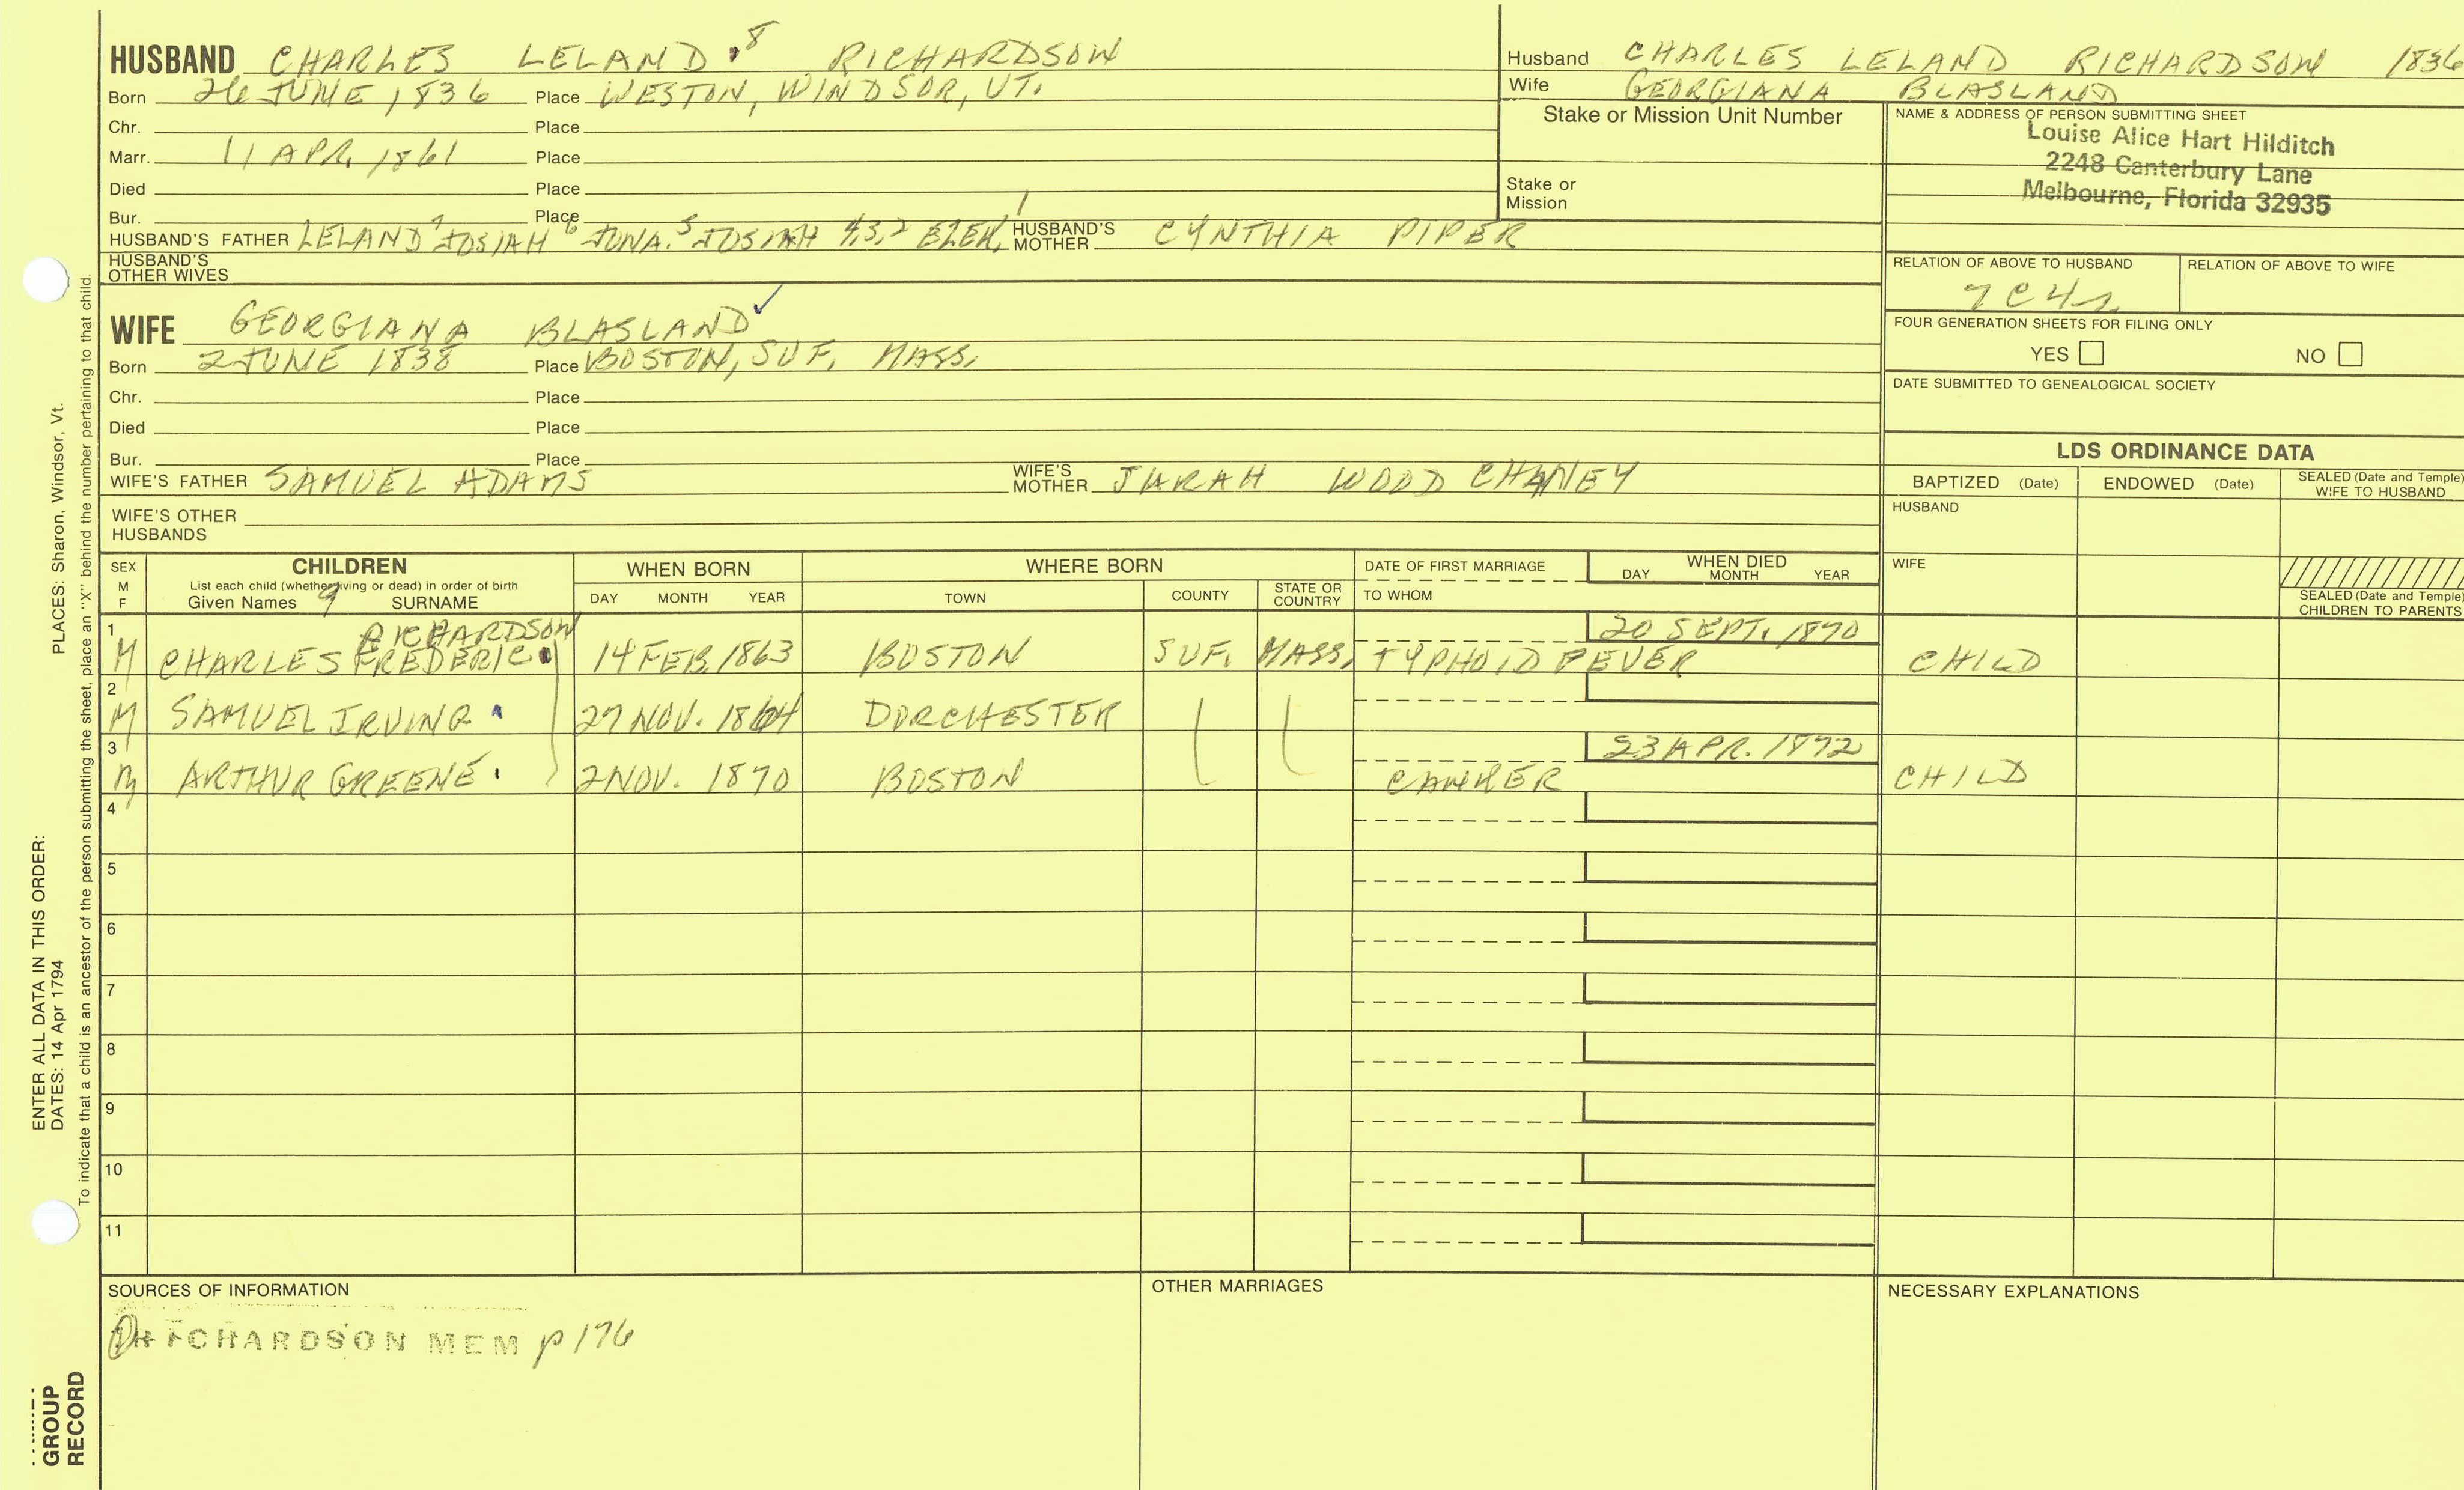 HUSBAND CHARLES LELAND 8 RICHARDSON
Born 26 JUNE 1836 Place WESTON, WINDSOR, VT.
Chr. Place
Marr. 11 APR. 1861 Place
Died Place
Bur. Place
HUSBAND'S FATHER LELAND 7 JOSIAH 6 JONA. 5 JOSIAH 4,3,2 EZEK. 1 HUSBAND'S MOTHER CYNTHIA PIPER
HUSBAND'S OTHER WIVES
WIFE GEORGIANA BLASLAND ✓
Born 2 JUNE 1838 Place BOSTON, SUF. MASS.
Chr. Place
Died Place
Bur. Place
WIFE'S FATHER SAMUEL ADAMS WIFE'S MOTHER SARAH WOOD CHANEY
WIFE'S OTHER HUSBANDS
Husband CHARLES LELAND RICHARDSON 1836
Wife GEORGIANA BLASLAND
Stake or Mission Unit Number
Stake or Mission
NAME & ADDRESS OF PERSON SUBMITTING SHEET
Louise Alice Hart Hilditch
2248 Canterbury Lane
Melbourne, Florida 32935
RELATION OF ABOVE TO HUSBAND RELATION OF ABOVE TO WIFE
7C4
FOUR GENERATION SHEETS FOR FILING ONLY
YES NO
DATE SUBMITTED TO GENEALOGICAL SOCIETY
LDS ORDINANCE DATA
BAPTIZED (Date) ENDOWED (Date) SEALED (Date and Temple) WIFE TO HUSBAND
HUSBAND
WIFE
SEALED (Date and Temple) CHILDREN TO PARENTS
SEX M F CHILDREN WHEN BORN WHERE BORN DATE OF FIRST MARRIAGE WHEN DIED
List each child (whether living or dead) in order of birth
Given Names 9 SURNAME DAY MONTH YEAR TOWN COUNTY STATE OR COUNTRY TO WHOM DAY MONTH YEAR
1 RICHARDSON 20 SEPT. 1870
M CHARLES FREDERIC 14 FEB. 1863 BOSTON SUF. MASS. TYPHOID FEVER CHILD
2
M SAMUEL IRVING 27 NOV. 1864 DORCHESTER
3 23 APR. 1872
M ARTHUR GREENE 2 NOV. 1870 BOSTON CANKER CHILD
4
5
6
7
8
9
10
11
SOURCES OF INFORMATION OTHER MARRIAGES NECESSARY EXPLANATIONS
RICHARDSON MEM p 176
ENTER ALL DATA IN THIS ORDER:
DATES: 14 Apr 1794 PLACES: Sharon, Windsor, Vt.
To indicate that a child is an ancestor of the person submitting the sheet, place an "X" behind the number pertaining to that child.
GROUP
RECORD